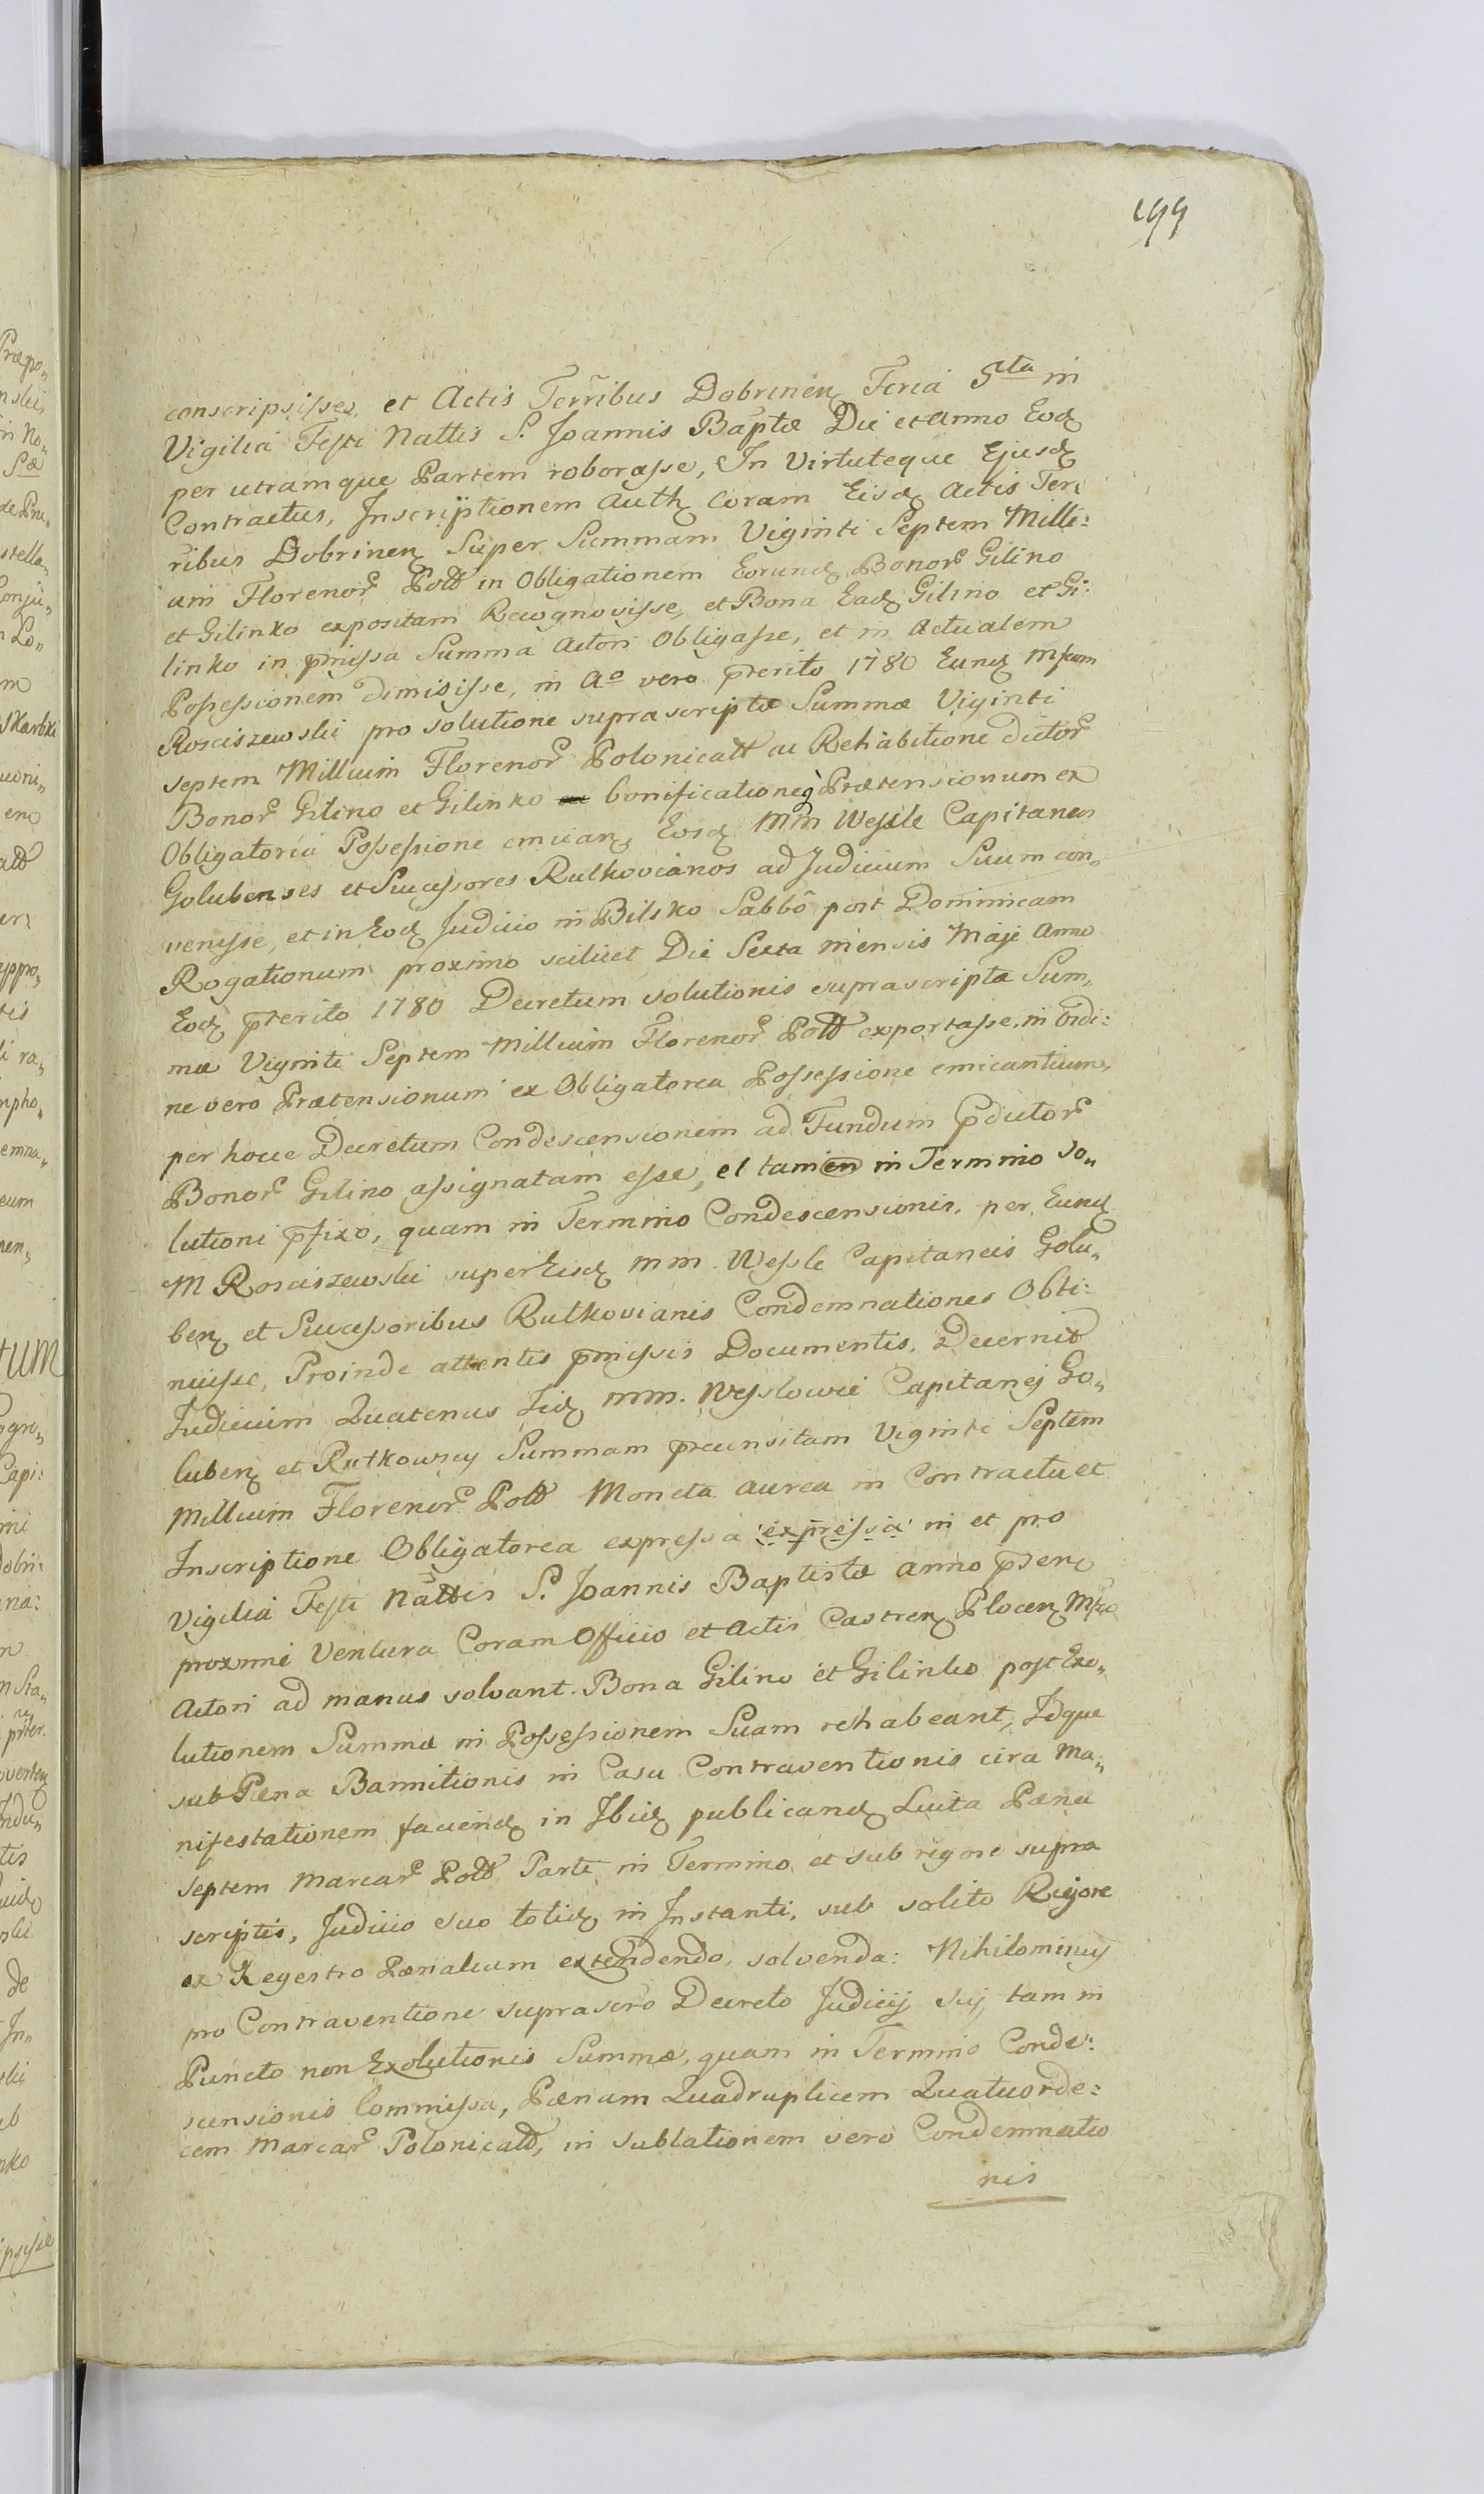 199
conscripsisse, et Actis Terribus Dobrinen Feria 5ta in
Vigilia Festi Nattis S. Joannis Baptæ Die et Anno Eod
per utramque Partem roborasse, In Virtuteque Ejusd
Contractus, Inscriptionem Auth coram Eisd Actis Ter:
ribus Dobrinen Super Summam Viginti Septem Milli:
um Florenor Poltt in Obligationem Eorund Bonor Gilino
et Gilinko expositam Recognovisse, et Bona Ead Gilino et Gi:
linko in pmissa Summa Actori Obligasse, et in Actualem
Possessionem dimisisse, in Ao vero pterito 1780 Eund Mfcum
Rosciszewski pro solutione suprascriptæ Summæ Viginti
septem Millium Florenor Polonicatt ac Rehabitione dictor
Bonor Gilino et Gilinko bonificationeq Prætensionum ex
Obligatoria Possessione emican, Eosd Mm Wessle Capitaneos
Golubenses et Successores Rutkovianos ad Judicium Suum con„
venisse, et in Eod Judicio in Bilsko Sabbo post Dominicam
Rogationum proximo scilicet Die Sexta mensis Maji Anno
Eod pterito 1780 Decretum solutionis suprascriptæ Sum„
mæ Viginti Septem Millium Florenor Poltt exportasse, in Ordi:
ne vero Prætensionum ex Obligatorea Possessione emicantium,
per hocce Decretum Condescensionem ad Fundum pdictor
Bonor Gilino assignatam esse, et tamen in Termino so„
lutioni pfixo, quam in Termino Condescensionis, per Eund
M Rosciszewski super Eisd mm. Wessle Capitaneis Golu„
ben et Successoribus Rutkovianis Condemnationes Obti:
nuisse, Proinde attentis pmissis Documentis, Decernit
Judicium Quatenus Iid mm. Wesslowie Capitanej Go„
luben et Rutkowscy Summam precensitam Viginti Septem
Millium Florenor Poltt Moneta aurea in Contractu et
Inscriptione Obligatorea expressa expressa in et pro
Vigilia Festi Nattis S. Joannis Baptistæ anno pden
proxime Ventura Coram Officio et Actis Castren Plocen Mfco
Actori ad manus solvant. Bona Gilino et Gilinko post Exo„
lutionem Summæ in Possessionem Suam rehabeant, Idque
sub Pæna Bannitionis in Casu Contraventionis cira Ma„
nifestationem faciend in Ibid publicand Luita Pæna
septem Marcar Poltt Parti in Termino et sub rigore supra
scriptis, Judicio suo totid in Instanti, sub solito Rigore
ex Regestro Pænalium extendendo, solvenda: Nihilominus
pro Contraventione suprascro Decreto Judicij sui, tam in
Puncto non Exolutionis Summæ, quam in Termino Conde:
scensionis Commissa, Pænam Quadruplicem Quatuorde:
cem Marcar Polonicatt, in sublationem vero Condemnatio
nis